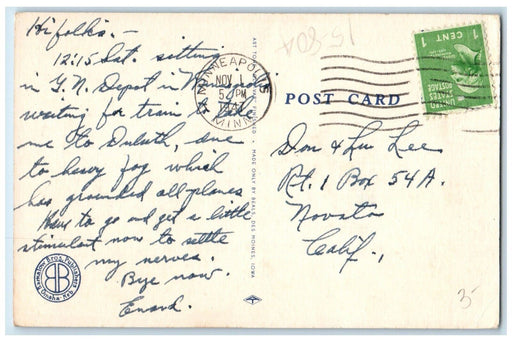 Hi folks. —
12:15 Sat. sitting
in G.N. Depot in
waiting for train to take
me to Duluth, due
to heavy fog which
has grounded all planes
Have to go and get a little
stimulant now to settle
my nerves.
Bye now.
MINNEAPOLIS
NOV 1
5 PM
MINN
15-804
1 CENT 1
UNITED STATES POSTAGE
POST CARD
Don & Lu Lee
Rt. 1 Box 54A.
Novato
Calif.,
MADE ONLY BY BEALS, DES MOINES, IOWA
Bros. Publishers
Omaha, Neb
3-